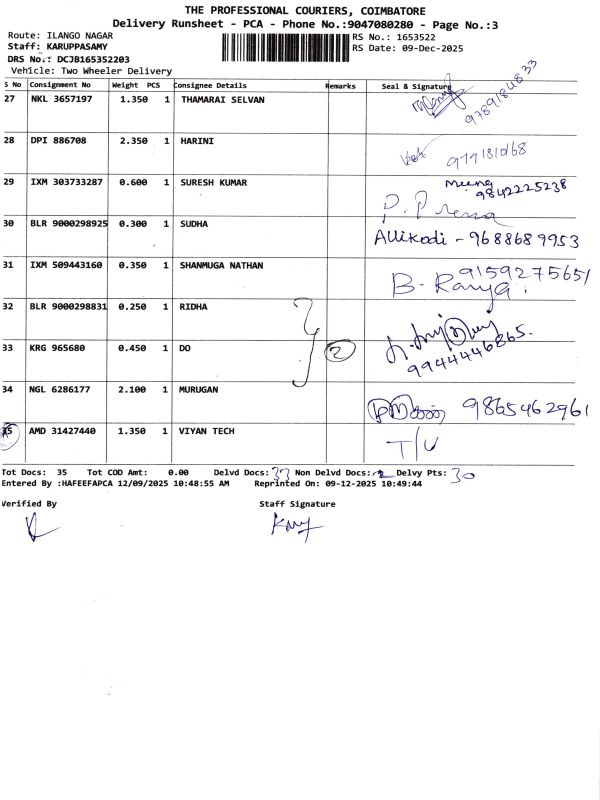 THE PROFESSIONAL COURIERS, COIMBATORE
Delivery Runsheet - PCA - Phone No.:9047080280 - Page No.:3
Route: ILANGO NAGAR
RS No.: 1653522
Staff: KARUPPASAMY
RS Date: 09-Dec-2025
DRS No.: DCJB165352203
Vehicle: Two Wheeler Delivery
S No Consignment No Weight PCS Consignee Details Remarks Seal & Signature
27 NKL 3657197 1.350 1 THAMARAI SELVAN
28 DPI 886708 2.350 1 HARINI
29 IXM 303733287 0.600 1 SURESH KUMAR Meena 9842225238
30 BLR 9000298925 0.300 1 SUDHA Allikodi - 9688689953
31 IXM 509443160 0.350 1 SHANMUGA NATHAN 9159275651
B. Ramya.
32 BLR 9000298831 0.250 1 RIDHA
33 KRG 965680 0.450 1 DO 2 9944446865.
34 NGL 6286177 2.100 1 MURUGAN 9865462961
35 AMD 31427440 1.350 1 VIYAN TECH T/U
Tot Docs: 35 Tot COD Amt: 0.00 Delvd Docs: 33 Non Delvd Docs: 2 Delvy Pts: 30
Entered By :HAFEEFAPCA 12/09/2025 10:48:55 AM Reprinted On: 09-12-2025 10:49:44
Verified By Staff Signature